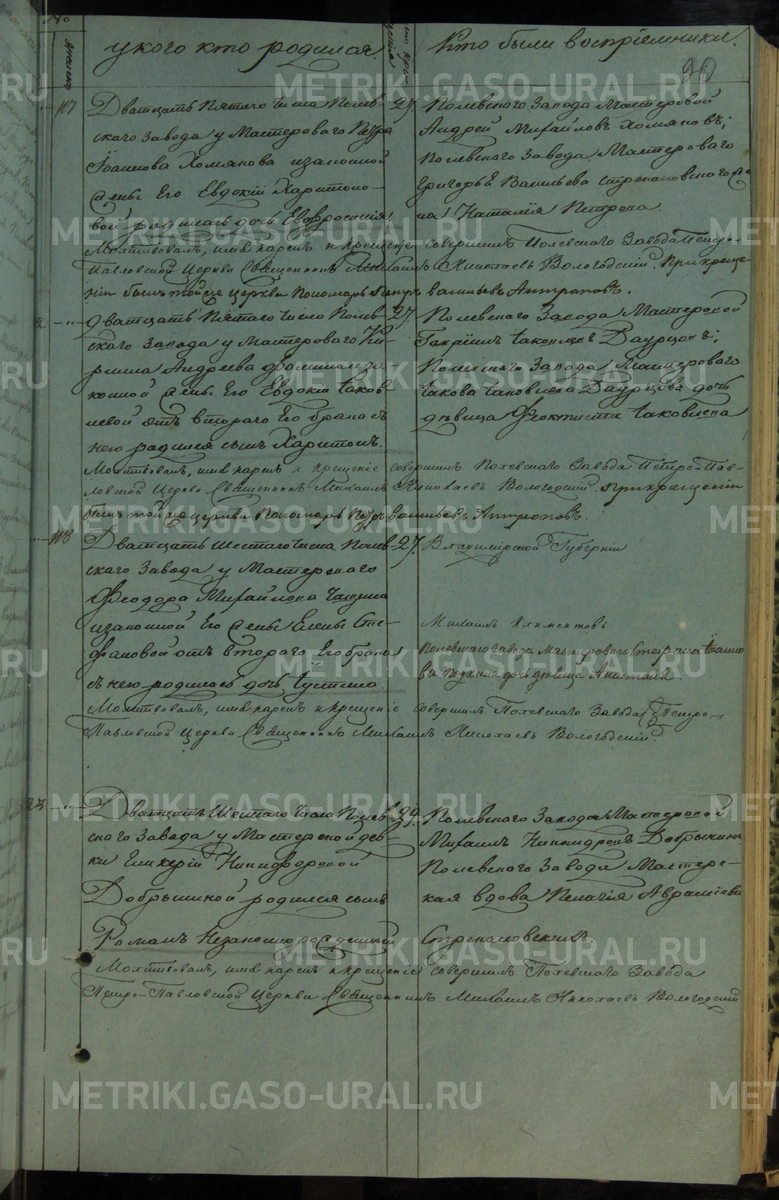 у кого кто родился.
Кто были восприемники.
90
METRIKI.GASO-URAL.RU
107
Дватцать пятого числа Полев-
27.
скаго Завода у Мастероваго Петра
Иоаннова Хомякова и законной
жены Его Евдокии Харитоно-
вой родилась дочь Евфросиния
Полевского Завода Мастеровой
Андрей Михайловъ Хомяковъ;
Полевского Завода Мастероваго
Григорья Васильева Стрекаловского
Наталия Петрова
Молитвовалъ, имя нарекъ и крещение совершилъ Полевского Завода Петро-
Павловской Церкви Священникъ Михаилъ Николаевъ Вологодский. При креще-
нии былъ той же церкви Пономарь Петръ Васильевъ Антроповъ.
Дватцать пятаго числа Полев-
27.
скаго Завода у Мастероваго
Андреева и за
конной жены Его Евдокии Яков
левой отъ втораго Его брака съ
нею родился сынъ Харитонъ.
Полевского Завода Мастеровой
Гавриилъ Яковлевъ
Полевского Завода Мастероваго
Якова Яковлева дочь
девица Феоктиста Яковлева
Молитвовалъ, имя нарекъ и крещение совершилъ Полевского Завода Петро-Пав-
ловской Церкви Священникъ Михаилъ Николаевъ Вологодский. При крещении
былъ той же церкви Пономарь Петръ Васильевъ Антроповъ.
108
Дватцать шестаго числа Полев-
27.
скаго Завода у Мастероваго
Феодора Михайлова
и законной Его жены Елены Сте-
фановой отъ втораго Его брака
съ нею родилась дочь Иустина
Владимирской Губернии
Михаилъ Климентовъ
Полевского завода Мастероваго
дочь девица Анатолия.
Молитвовалъ, имя нарекъ и крещение совершилъ Полевского Завода Петро-
Павловской Церкви Священникъ Михаилъ Николаевъ Вологодский.
Дватцать шестаго числа Полев-
29.
скаго Завода у Мастерской дев-
ки Гликерии Никифоровой
Добрыниной родился сынъ
Романъ незаконнорожденный
Полевского Завода Мастеровой
Михаилъ Никандровъ Добрынинъ
Полевского Завода Мастерс-
кая вдова Пелагия Аврамиева
Стрекаловскихъ.
Молитвовалъ, имя нарекъ и крещение совершилъ Полевского Завода
Петро-Павловской Церкви Священникъ Михаилъ Николаевъ Вологодский